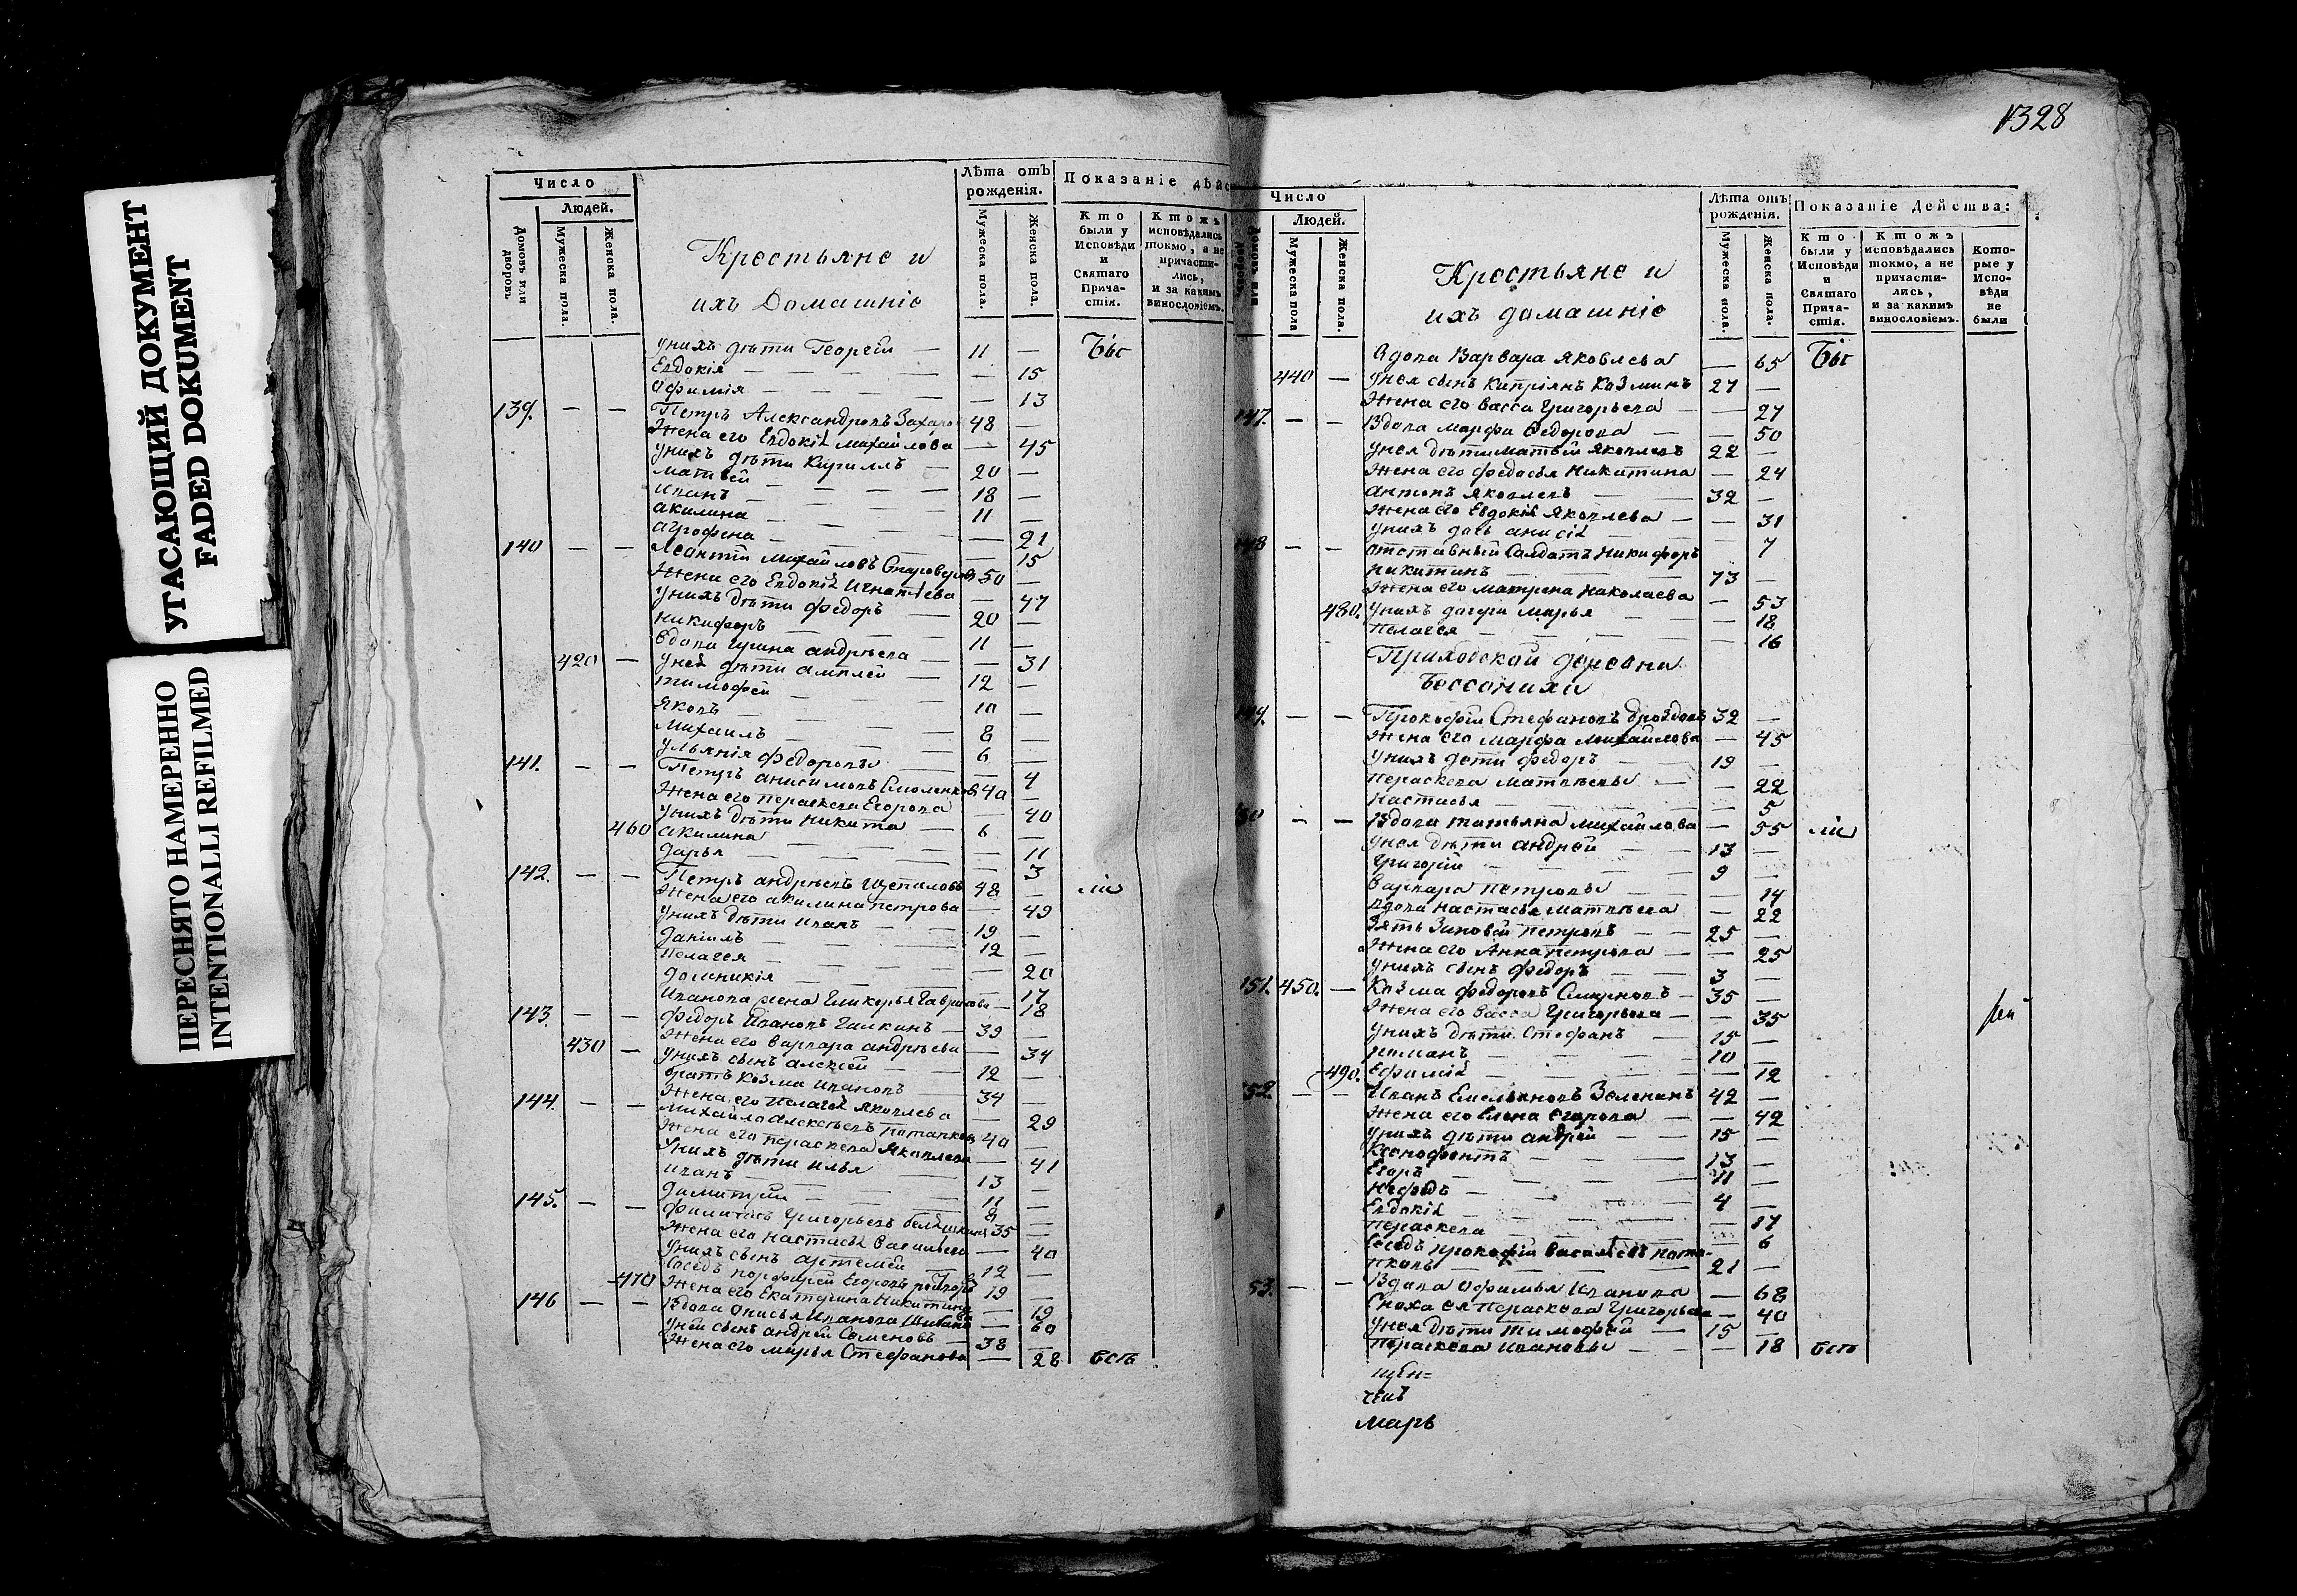 УГАСАЮЩИЙ ДОКУМЕНТ
FADED DOKUMENT
ПЕРЕСНЯТО НАМЕРЕННО
INTENTIONALLI REFILMED
Число
Людей.
Домовъ или дворовъ
Мужеска пола.
Женска пола.
Крестьяне и
ихъ Домашніе
Лѣта отъ рожденія.
Мужеска пола.
Женска пола.
Показаніе дѣйс
Кто были у Исповѣди и Святаго Прича-стія.
Ктожъ исповѣдались токмо, а не причасти-лись, и за какимъ винословіемъ.
унихъ дѣти Георгій — 11 — Бы
Евдокія — — 15
Офимія — — 13
139. — — Петръ Александровъ Захаро 48 —
Жена его Евдокія михайлова — 45
унихъ дѣти Кириллъ — 20 —
матвѣй — 18 —
Иванъ — 11 —
акилина — — 21
агрофена — — 15
140 — — Леонтій михайловъ Староверовъ 50 —
Жена его Евдокія Игнатіева — 47
унихъ дѣти Федоръ — 20 —
никифоръ — 11 —
вдова ирина андрѣева — — 31
420 — уней дѣти 12 —
тимофей — 10 —
Яковъ — 8 —
Михаилъ — 6 —
ульянія Федоровы — 4
141. — — Петръ анисимовъ Смоленковъ 40 —
Жена его пераскева Егорова — 40
унихъ дѣти никита — 6 —
460 акилина — — 11
дарья — — 3
142. — — Петръ андрѣевъ Щепиловъ 48 — ли
Жена его акилина петрова — 49
унихъ дѣти иванъ — 19 —
даніилъ — 12 —
пелагея — — 20
домникія — — 17
Иванова жена Гликерья Гаврилова — 18
143. — — Федоръ Ивановъ Галкинъ — 39 —
Жена его варвара андрѣева — 34
430 — унихъ сынъ алексей — 12 —
братъ козма ивановъ — 34 —
Жена его пелагея яковлева — 29
144. — — михайло алексѣевъ потапковъ 40 —
Жена его пераскева Яковлева — 41
унихъ дѣти илья — 13 —
иванъ — 11 —
димитрій — 8 —
145. — — Филиппъ григорьевъ 35 —
Жена его настасья васильева — 40
унихъ сынъ артемей — 12 —
сосѣдъ порфирей Егоровъ 19 —
470 Жена его Екатерина никитина — 19
146 — — Вдова онисья иванова — 60
уней сынъ андрей семеновъ — 38 —
Жена его марья стефанова — 28 есть
1328
Число
Людей.
Домовъ или дворовъ
Мужеска пола
Женска пола.
Крестьяне и
ихъ домашніе
Лѣта отъ рожденія.
Мужеска пола.
Женска пола.
Показаніе Действа:
Кто были у Исповѣди и Святаго Прича-стія.
Ктожъ исповѣдались токмо, а не причасти-лись, и за какимъ винословіемъ.
Кото-рые у Испо-вѣди не были
вдова варвара яковлева — 65 Бы
440 — унея сынъ кипріянъ козминъ 27 —
Жена его васса григорьева — — 27
147. — — Вдова марфа Федорова — — 50
унея дѣти матвѣй яковлевъ 22 —
Жена его федосья никитина — 24
антонъ яковлевъ — 32 —
Жена его Евдокія яковлева — — 31
унихъ дочь анисія — — 7
148 — — отставный солдатъ никифоръ
никитинъ — 73 —
Жена его матрена николаева — 53
480. унихъ дочери марья — — 18
пелагея — — 16
Приходской деревни
Бессонихи
149. — — Прокофій Стефановъ дроздовъ 32 —
Жена его марфа михайлова — 45
унихъ дети федоръ — 19 —
пераскева матвѣевы — — 22
настасья — — 5
50 — — Вдова татьяна михайлова — 55 ли
унея дѣти андрей — 13 —
григорій — 9 —
варвара петровы — — 14
вдова настасья матвѣева — 22
зять Зиновей петровъ — 25 —
Жена его Анна петрова — — 25
унихъ сынъ федоръ — 3 —
151. 450. — Козма федоровъ Смирновъ — 35 —
Жена его васса григорьева — — 35
унихъ дѣти Стефанъ — 15 —
романъ — 10 —
490. Ефимія — — 12
152. — — Иванъ Емельяновъ Зеленинъ 42 —
Жена его Елена егорова — — 42
унихъ дѣти андрей — 15 —
Ксенофонтъ — 13 —
Егоръ — 11 —
нефедъ — 4 —
Евдокія — — 17
пераскева — — 6
сосѣдъ прокофій васильевъ пота-
пковъ — 21 —
53. — — Вдова офимья иванова — 68
Сноха ея пераскева григорьева — 40
унея дѣти тимофей — 15 —
пераскева ивановы — — 18 есть
щен=
чиъ
марь